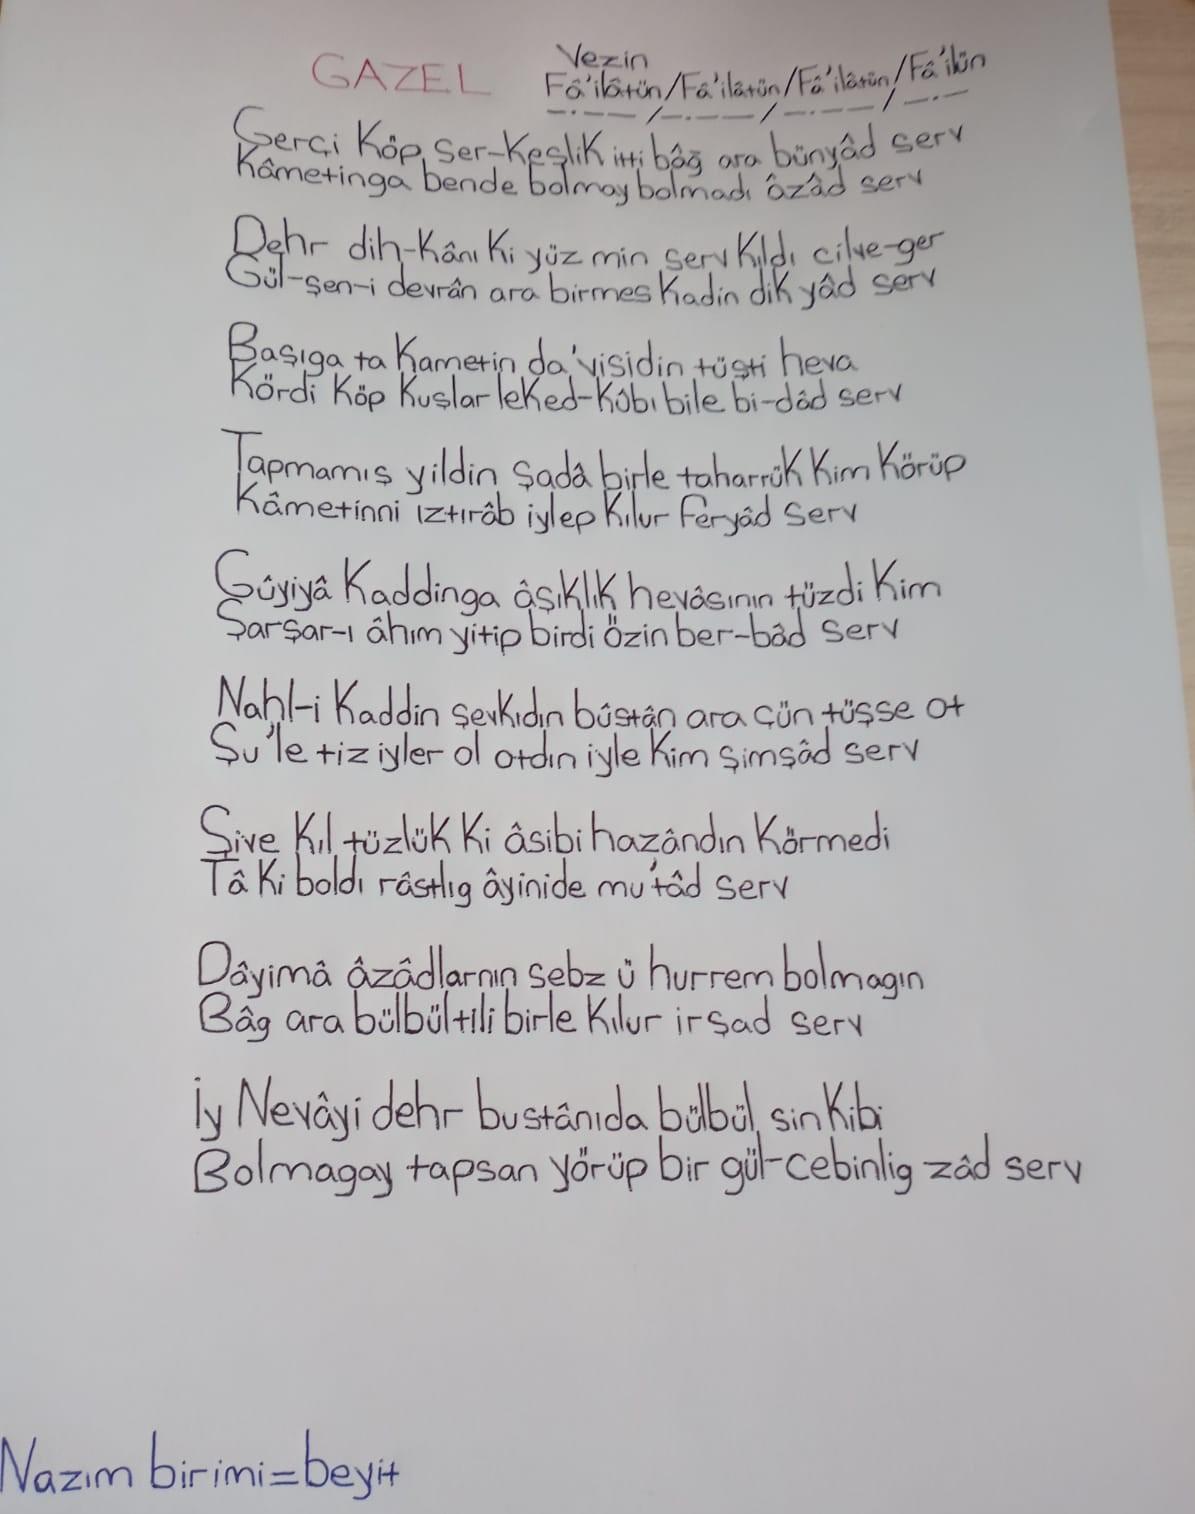 GAZEL
Vezin
Fâ'ilâtün/Fâ'ilâtün/Fâ'ilâtün/Fâ'ilün
-.--/-.--/-.--/-.-
Gerçi Köp Ser-Keşlik itti bâğ ara bünyâd serv
Kâmetinga bende bolmay bolmadı âzâd serv
Dehr dih-Kânı Ki yüz min serv Kıldı cilve-ger
Gül-şen-i devrân ara birmes Kadin dik yâd serv
Başıga ta Kametin da'visidin tüşti heva
Kördi Köp Kuşlar leked-Kûbı bile bi-dâd serv
Tapmamış yildin şadâ birle taharrük Kim Körüp
Kâmetinni ıztırâb iylep Kılur feryâd serv
Gûyiyâ Kaddinga âşıklık hevâsının tüzdi Kim
Şarşar-ı âhım yitip birdi Özin ber-bâd serv
Nahl-i Kaddin şevkıdın bûstân ara çün tüşse ot
Şu'le tiz iyler ol otdın iyle Kim şimşâd serv
Şive Kıl tüzlük Ki âsibi hazândın Körmedi
Tâ Ki boldı râstlıg âyinide mu'tâd serv
Dâyimâ âzâdlarnın sebz ü hurrem bolmagın
Bâg ara bülbül tili birle Kılur irşad serv
İy Nevâyi dehr bustânıda bülbül sin Kibi
Bolmagay tapsan yörüp bir gül-cebinlig zâd serv
Nazım birimi=beyit